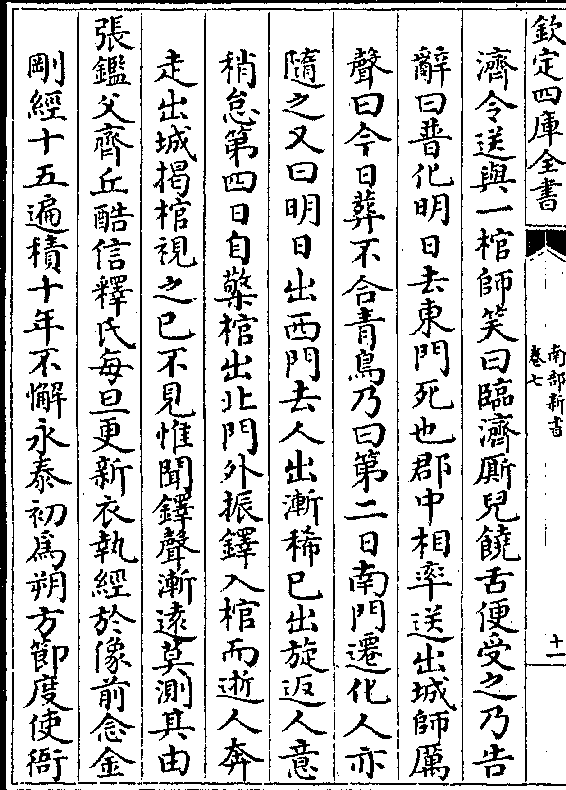 欽定四庫全書
南部新書
卷七
十一
濟令送與一棺師笑曰臨濟厮兒饒舌便受之乃告
辭曰普化明日去東門死也郡中相率送出城師厲
聲曰今日葬不合青鳥乃曰第二日南門遷化人亦
隨之又曰明日出西門去人出漸稀已出旋返人意
稍怠第四日自擎棺出北門外振鐸入棺而逝人奔
走出城揭棺視之已不見惟聞鐸聲漸遠莫測其由
張鑑父齊丘酷信釋氏每旦更新衣執經於像前念金
剛經十五遍積十年不懈永泰初爲朔方節度使衙